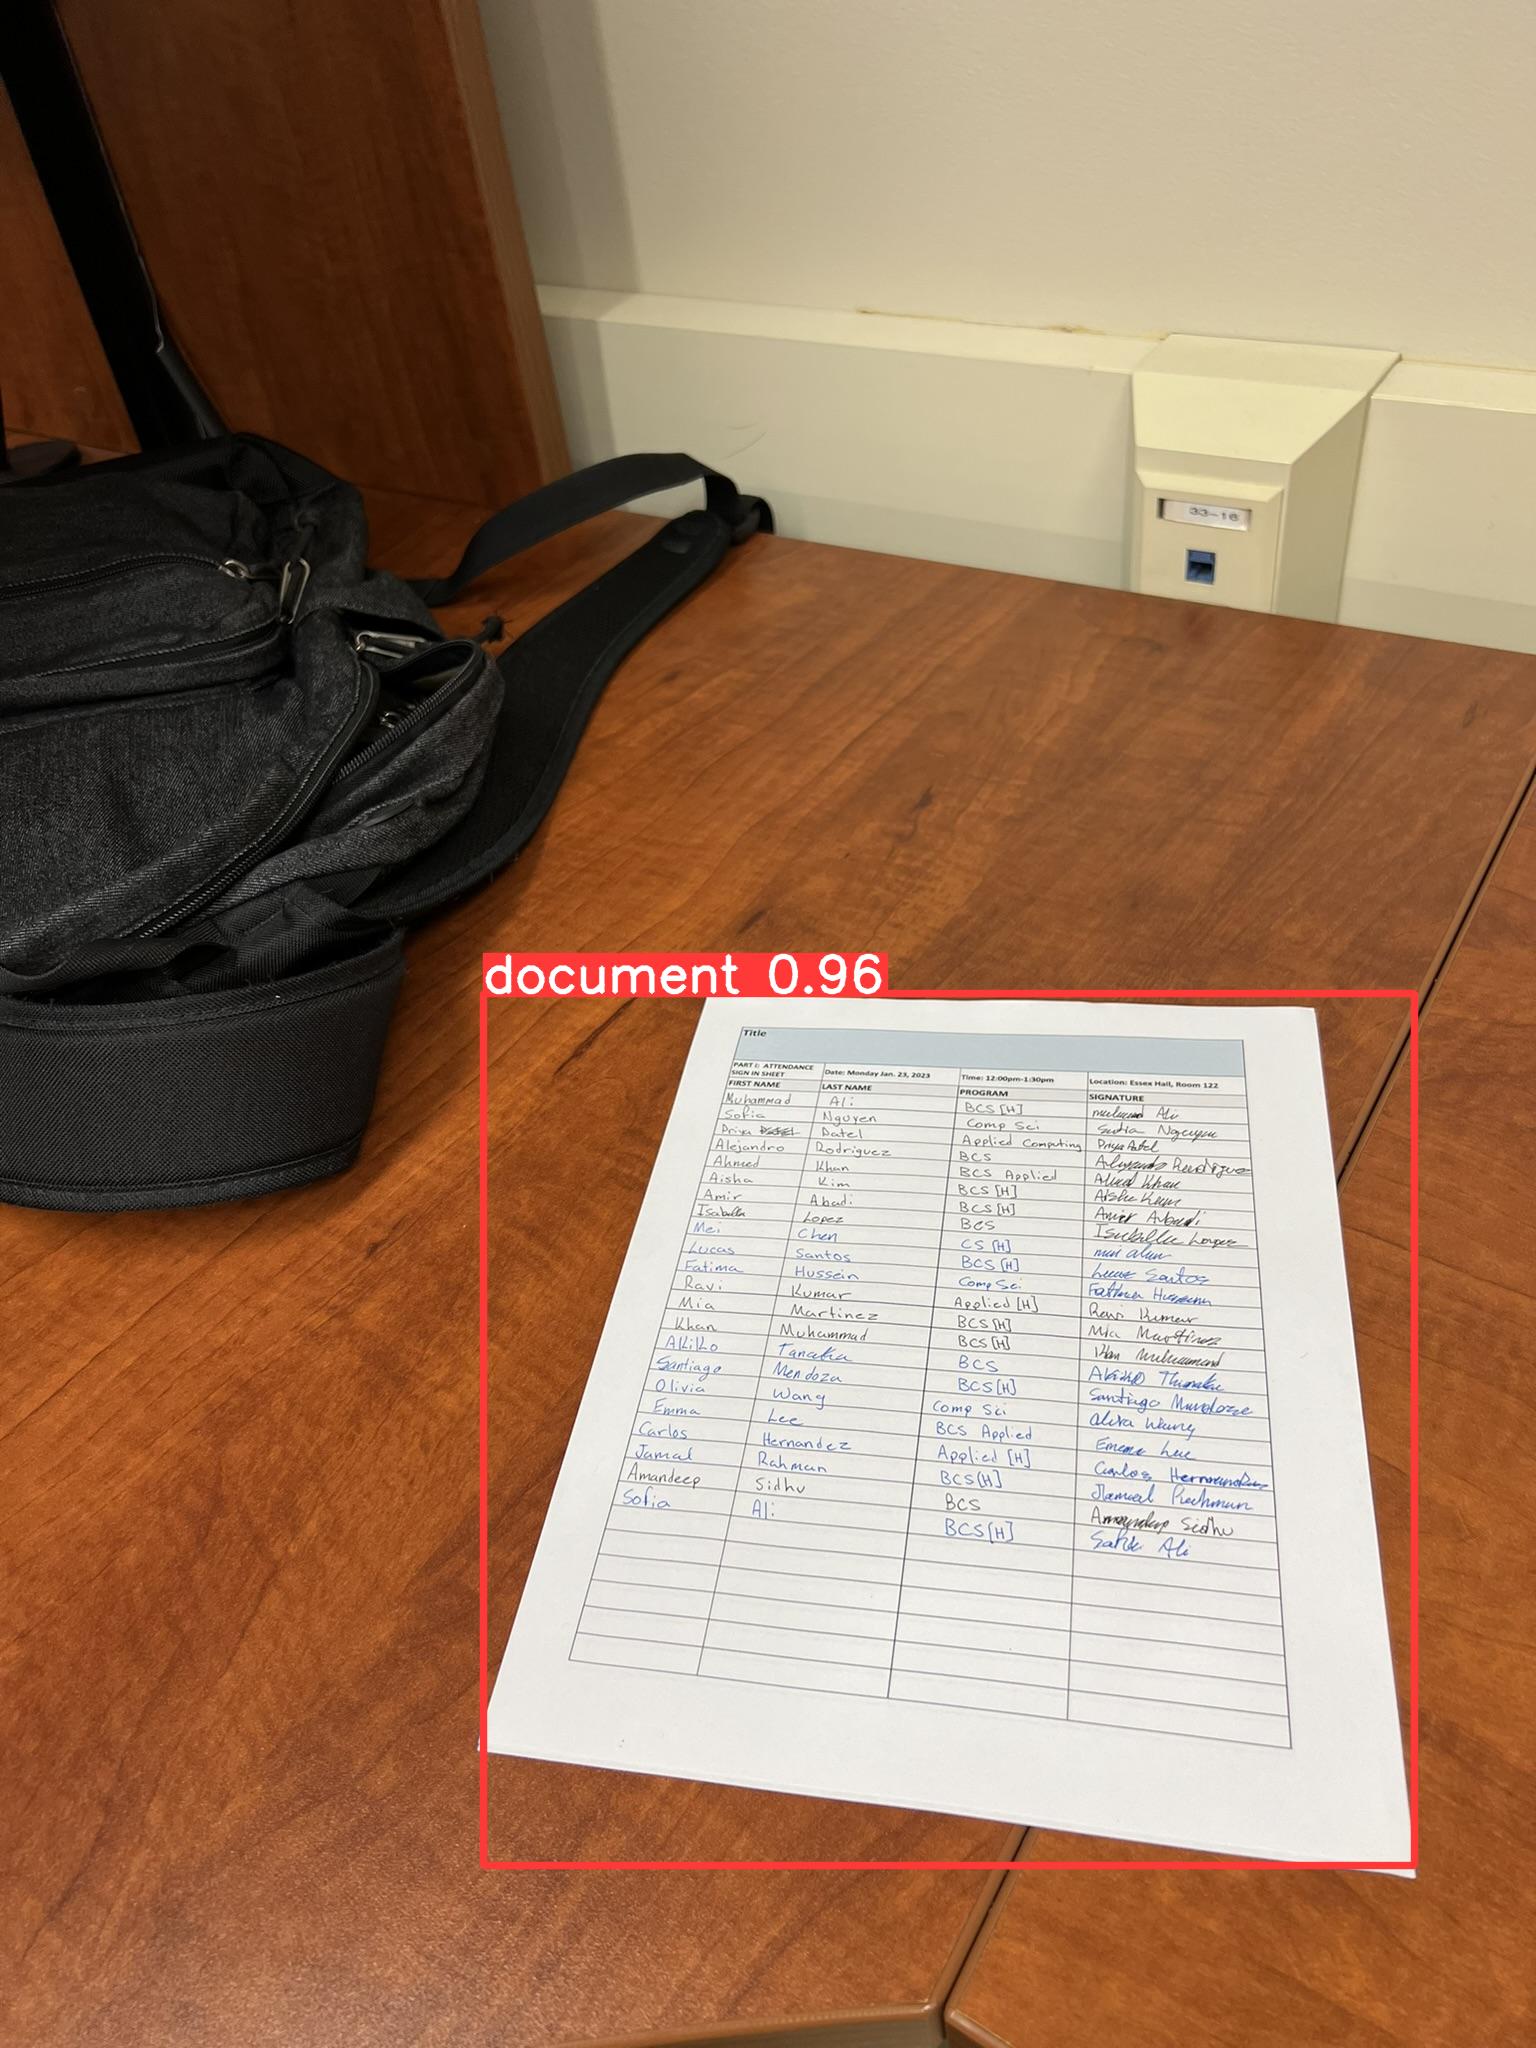 33-16
document 0.96
Title
PART I: ATTENDANCE SIGN IN SHEET Date: Monday Jan. 23, 2023 Time: 12:00pm-1:30pm Location: Essex Hall, Room 122
FIRST NAME LAST NAME PROGRAM SIGNATURE
Muhammad Ali BCS [H] Ali
Sofia Nguyen Comp Sci Nguyen
Priya Patel Applied Computing Priya Patel
Alejandro Rodriguez BCS Alejandro Rodriguez
Ahmed Khan BCS Applied Ahmed Khan
Aisha Kim BCS [H] Aisha Kim
Amir Abadi BCS [H] Amir Abadi
Isabella Lopez BCS Isabella Lopez
Mei Chen CS [H]
Lucas Santos BCS [H] Lucas Santos
Fatima Hussein Comp Sci Fatima Hussein
Ravi Kumar Applied [H] Ravi Kumar
Mia Martinez BCS [H] Mia Martinez
Khan Muhammad BCS [H] Khan Muhammad
Akiko Tanaka BCS Akiko
Santiago Mendoza BCS [H] Santiago
Olivia Wang Comp Sci Wang
Emma Lee BCS Applied Emma Lee
Carlos Hernandez Applied [H] Carlos Hernandez
Jamal Rahman BCS [H] Jamal Rahman
Amandeep Sidhu BCS Sidhu
Sofia Ali BCS [H] Ali